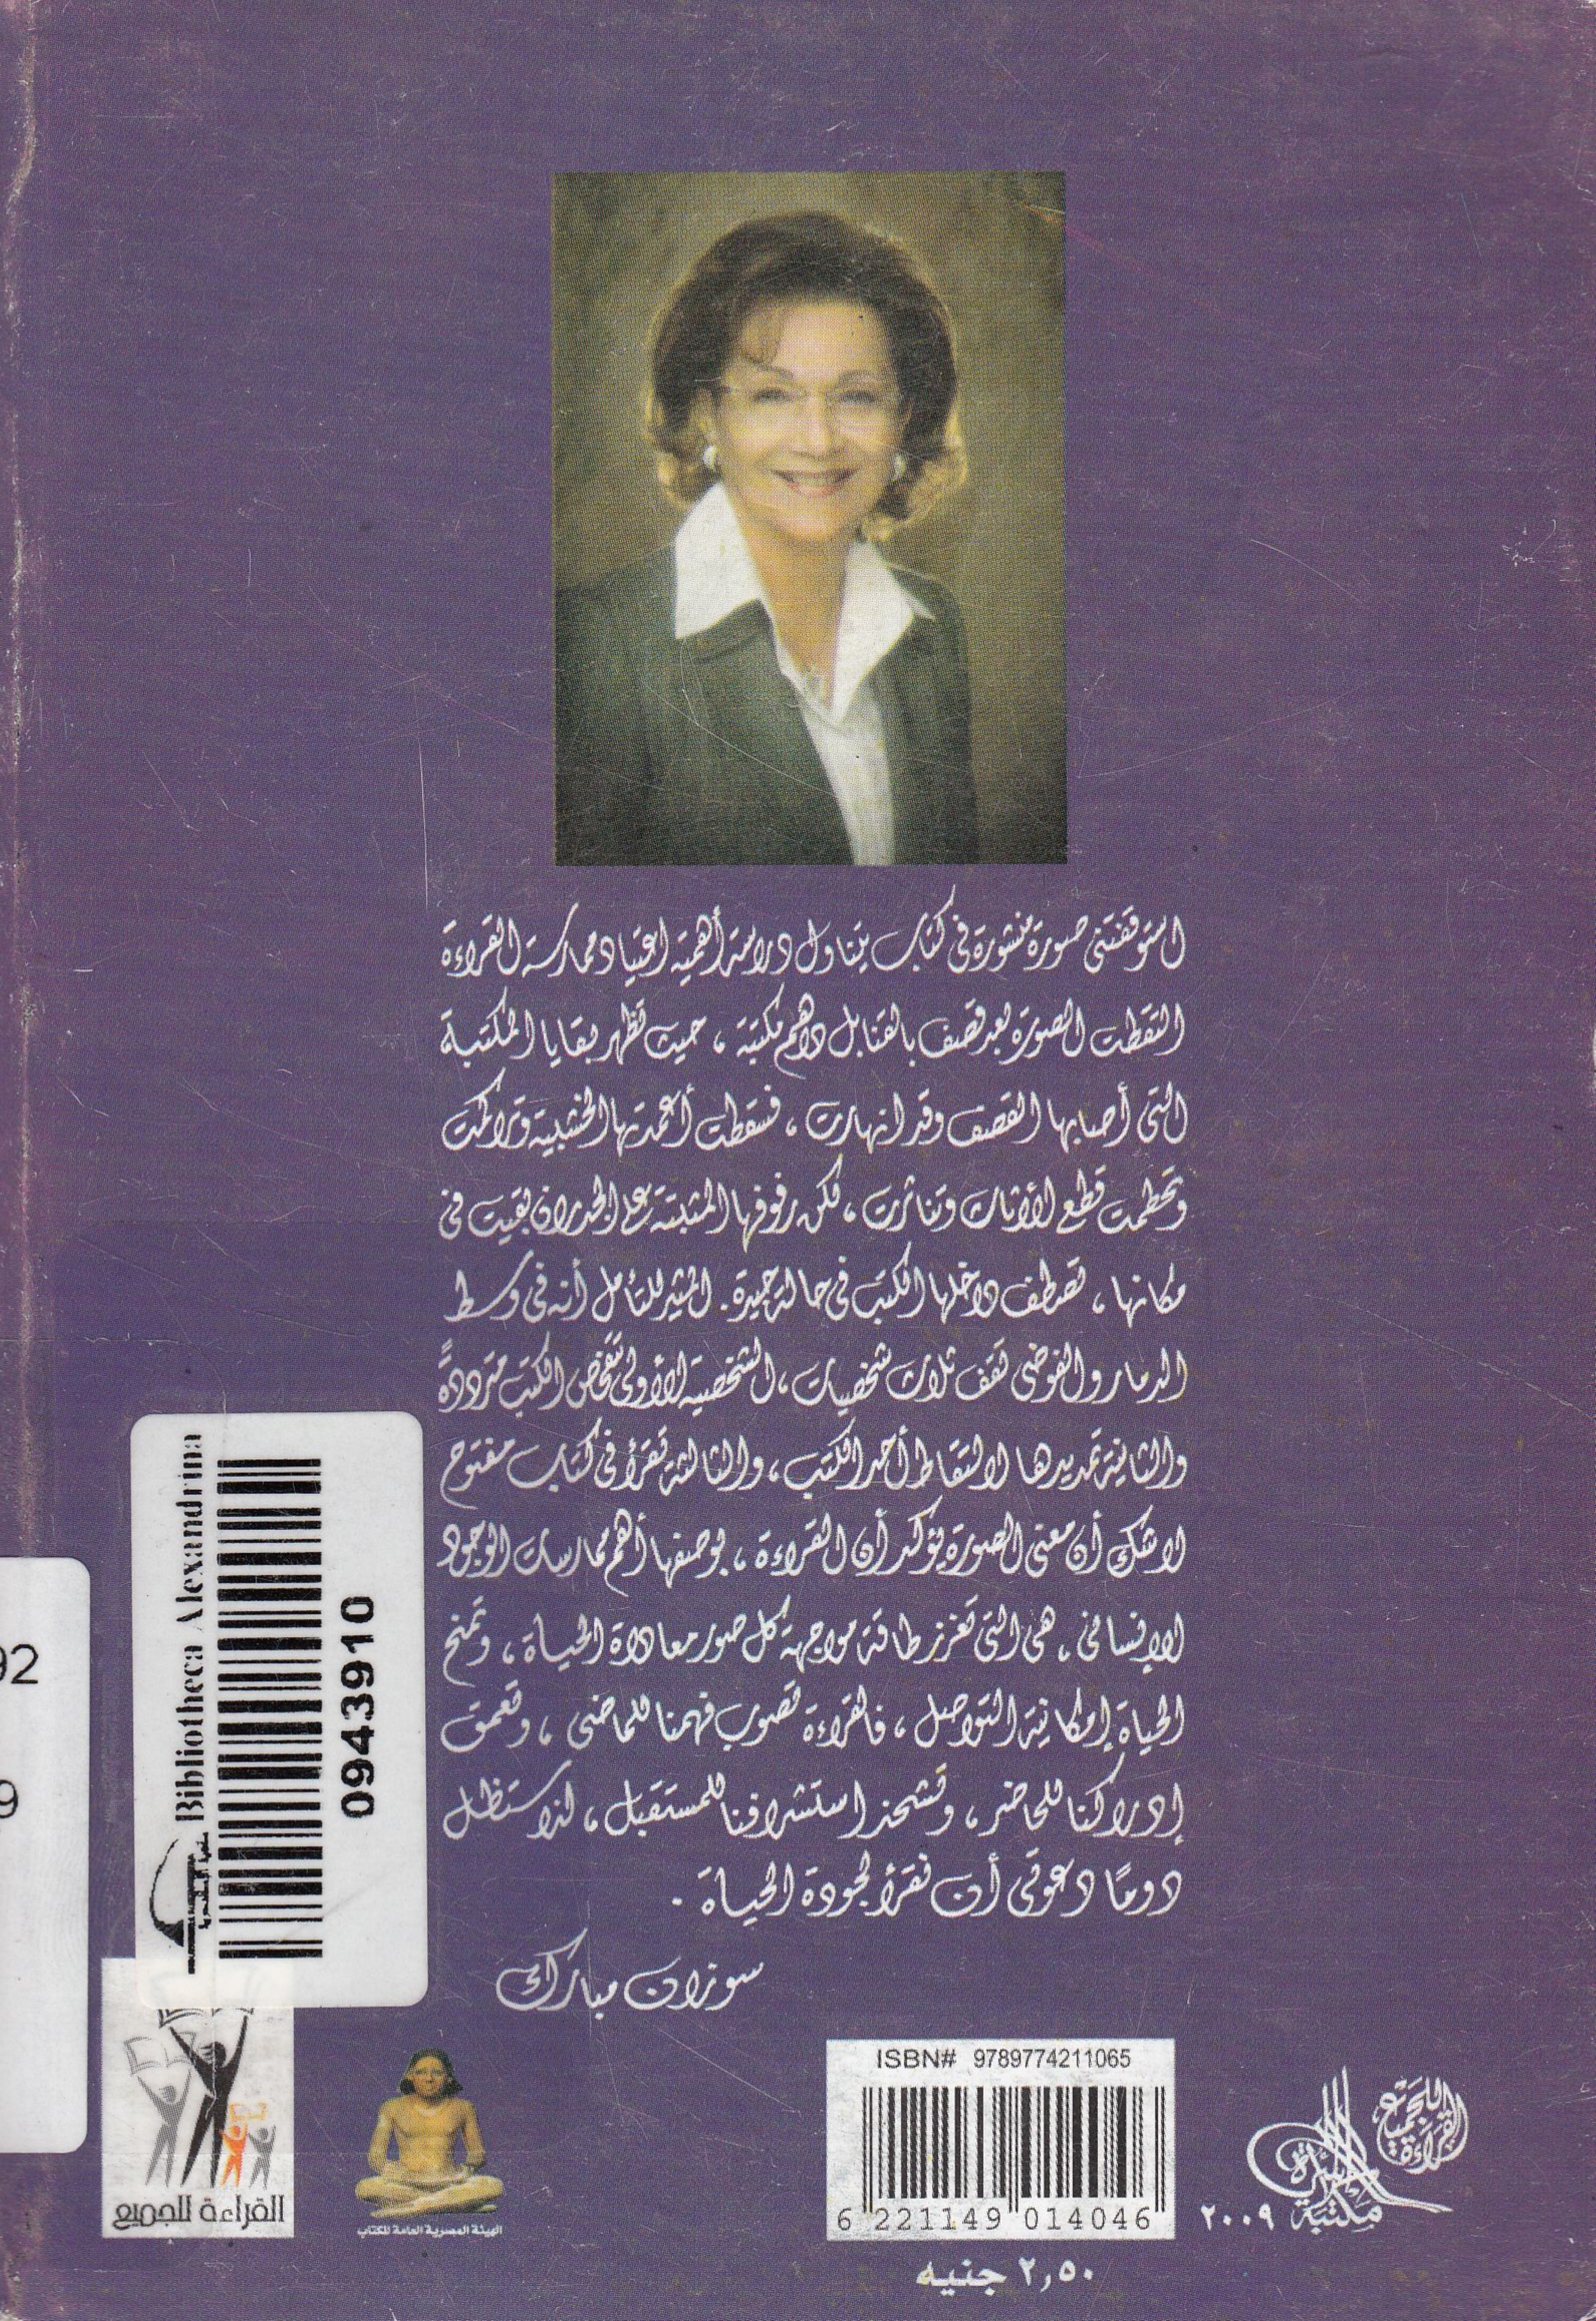 استوقفتنى صورة منشورة فى كتاب يتناول دراسة أهمية اعتياد ممارسة القراءة
التقطت الصورة بعد قصف بالقنابل داهم مكتبة ، حيث تظهر بقايا المكتبة
التى أصابها القصف وقد انهارت ، فسقطت أعمدتها الخشبية وتراكمت
وتحطمت قطع الأثاث وتناثرت ، لكن رفوفها المثبتة على الجدران بقيت فى
مكانها ، تصطف داخلها الكتب فى حالة جيدة . المثير للتأمل أنه فى وسط
الدمار والفوضى تقف ثلاث شخصيات ، الشخصية الأولى تتفحص الكتب مترددةً
والثانية تمد يدها لالتقاط أحد الكتب ، والثالثة تقرأ فى كتاب مفتوح
لا شك أن معنى الصورة يؤكد أن القراءة ، بوصفها أهم ممارسات الوجود
الإنسانى ، هى التى تعزز طاقة مواجهة كل صور معاداة الحياة ، وتمنح
الحياة إمكانية التواصل ، فالقراءة تصوب فهمنا للماضى ، وتعمق
إدراكنا للحاضر ، وتشحذ استشرافنا للمستقبل ، لذا ستظل
دومًا دعوتى أن نقرأ لجودة الحياة .
سوزان مبارك
Bibliotheca Alexandrina
مكتبة الإسكندرية
0943910
92
9
القراءة للجميع
الهيئة المصرية العامة للكتاب
ISBN# 9789774211065
6 221149 014046
٢,٥٠ جنيه
القراءة للجميع
مكتبة الأسرة
٢٠٠٩